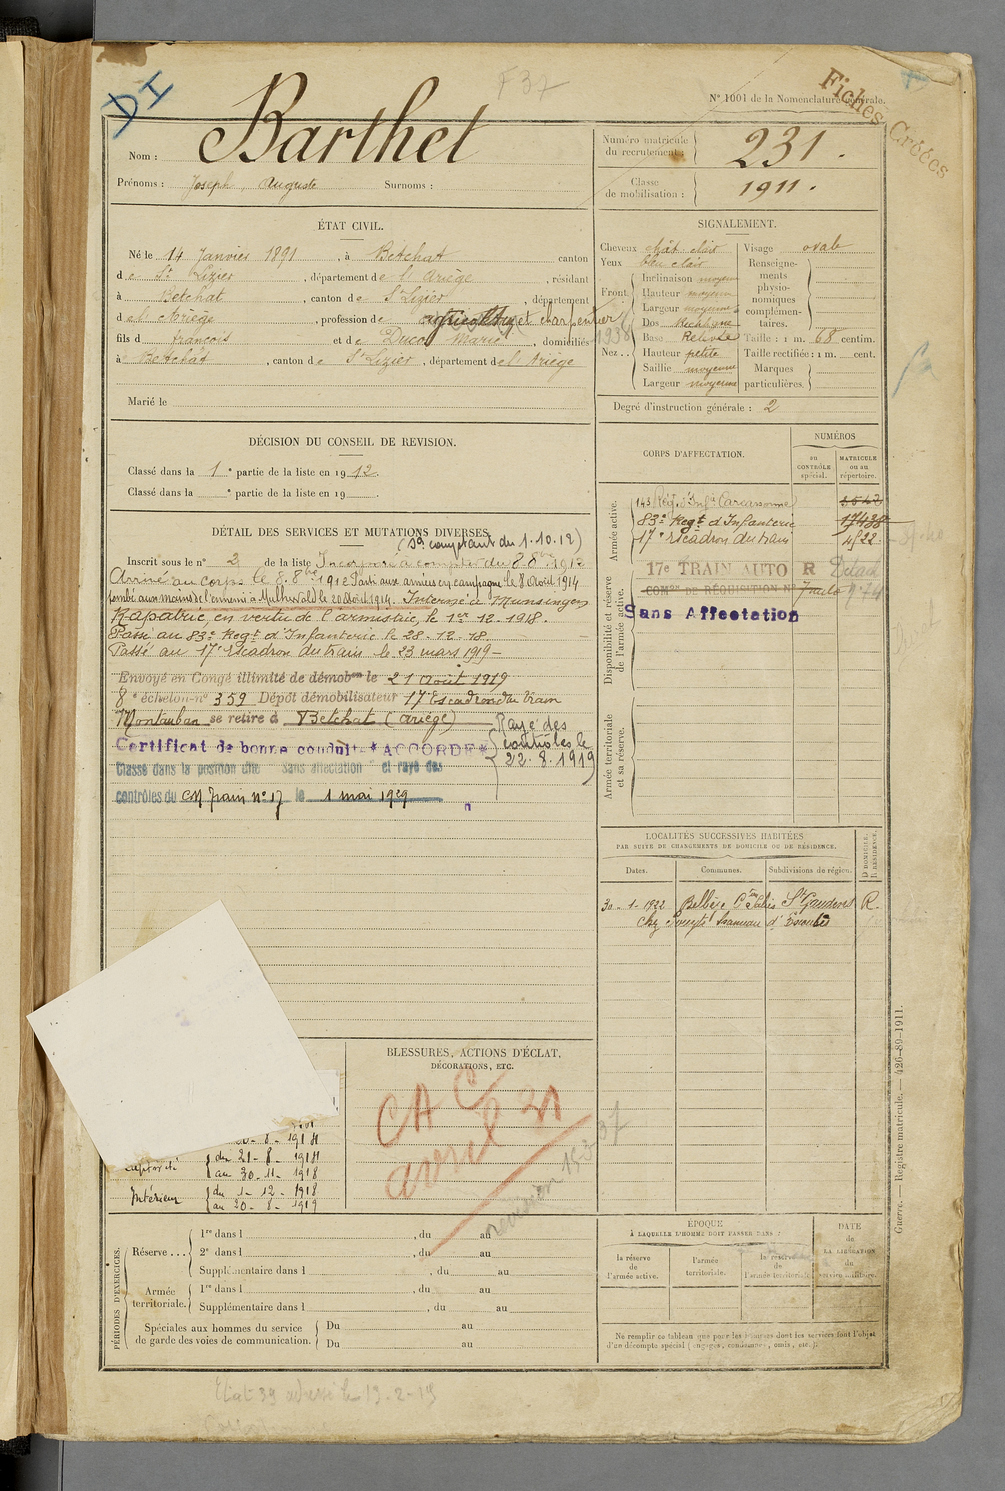 DI
F 37
N° 1001 de la Nomenclature générale.
Fiches Créées
Nom : Barthet
Prénoms : Joseph, Auguste Surnoms :
Numéro matricule du recrutement : 231.
Classe de mobilisation : 1911.
ÉTAT CIVIL.
Né le 14 Janvier 1891, à Betchat canton
de St Lizier, département de l'Ariège, résidant
à Betchat, canton de St Lizier, département
de l'Ariège, profession de et charpentier
fils d François et de Ducos Marie, domiciliés
à Betchat, canton de St Lizier, département de l'Ariège
Marié le
SIGNALEMENT.
Cheveux chât clair
Yeux bleu clair
Front.
Inclinaison moyen
Hauteur moyenne
Largeur moyenne
Nez..
Dos Rectiligne
Base Relevée
Hauteur petite
Saillie moyenne
Largeur moyenne
Visage ovale
Renseignements physionomiques complémentaires.
Taille : 1 m. 68 centim.
Taille rectifiée : 1 m. cent.
Marques particulières.
Degré d'instruction générale : 2
1938
DÉCISION DU CONSEIL DE REVISION.
Classé dans la 1e partie de la liste en 1912.
Classé dans la e partie de la liste en 19
DÉTAIL DES SERVICES ET MUTATIONS DIVERSES.
(Sce comptant du 1.10.12)
Inscrit sous le n° 2 de la liste Incorporé à compter du 8 8bre 1912
Arrivé au corps le 8. 8bre 1912 Parti aux armées en campagne le 8 Août 1914
Tombé aux mains de l'ennemi à Mulherwald le 20 Août 1914. Interné à Munsingen
Rapatrié, en vertu de l'armistice, le 1er 12. 1918.
Passé au 83e Regt d'Infanterie le 28. 12. 18.
Passé au 17e Escadron du train le 23 mars 1919 -
Envoyé en Congé illimité de démobon le 21 Août 1919
8e échelon n° 359 Dépôt démobilisateur 17e Escadron du Train
Montauban se retire à Betchat (Ariège)
Rayé des contrôles le 22. 8. 1919
Certificat de bonne conduite *ACCORDÉ*
Classé dans la position dite "Sans affectation" et rayé des
contrôles du CM Train N° 17 le 1 mai 1929
CORPS D'AFFECTATION.
NUMÉROS
AU CONTRÔLE spécial.
MATRICULE ou au répertoire.
Armée active.
143 Rég. d'Infie Carcassonne
83e Regt d'Infanterie 17438
17e Escadron du train 4522
Disponibilité et réserve de l'armée active.
17e TRAIN AUTO R
COMon DE RÉQUISITION N°
Sans Affectation
Armée territoriale et sa réserve.
LOCALITÉS SUCCESSIVES HABITÉES
PAR SUITE DE CHANGEMENTS DE DOMICILE OU DE RÉSIDENCE.
Dates. Communes. Subdivisions de région. D DOMICILE. R RÉSIDENCE.
30 - 1 - 1922 St Gaudens R.
chez
BLESSURES, ACTIONS D'ÉCLAT,
DÉCORATIONS, ETC.
CAC
avril 21
revision
20 - 8 - 1914
Captivité
du 21 - 8 - 1914
au 30 - 11 - 1918
Intérieur
du 1 - 12 - 1918
au 20 - 8 - 1919
PÉRIODES D'EXERCICES.
Réserve ...
1re dans l , du au
2e dans l , du au
Supplémentaire dans l , du au
Armée territoriale.
1re dans l , du au
Supplémentaire dans l , du au
Spéciales aux hommes du service de garde des voies de communication.
Du au
Du au
ÉPOQUE
À LAQUELLE L'HOMME DOIT PASSER DANS :
la réserve de l'armée active.
l'armée territoriale.
la réserve de l'armée territoriale.
DATE de LA LIBÉRATION du service militaire.
Ne remplir ce tableau que pour les hommes dont les services font l'objet
d'un décompte spécial (engagés, condamnés, omis, etc.).
Guerre. — Registre matricule. — 426-89-1911.